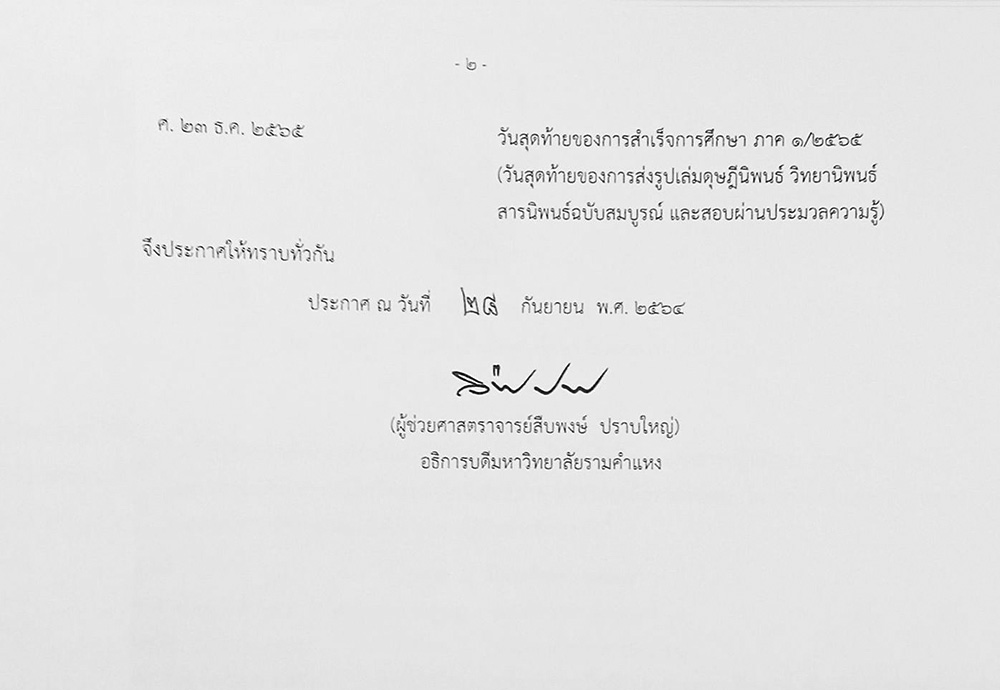 - ๒ -
ศ. ๒๓ ธ.ค. ๒๕๖๕
วันสุดท้ายของการสำเร็จการศึกษา ภาค ๑/๒๕๖๕
(วันสุดท้ายของการส่งรูปเล่มดุษฎีนิพนธ์ วิทยานิพนธ์
สารนิพนธ์ฉบับสมบูรณ์ และสอบผ่านประมวลความรู้)
จึงประกาศให้ทราบทั่วกัน
ประกาศ ณ วันที่ ๒๘ กันยายน พ.ศ. ๒๕๖๔
(ผู้ช่วยศาสตราจารย์สืบพงษ์ ปราบใหญ่)
อธิการบดีมหาวิทยาลัยรามคำแหง